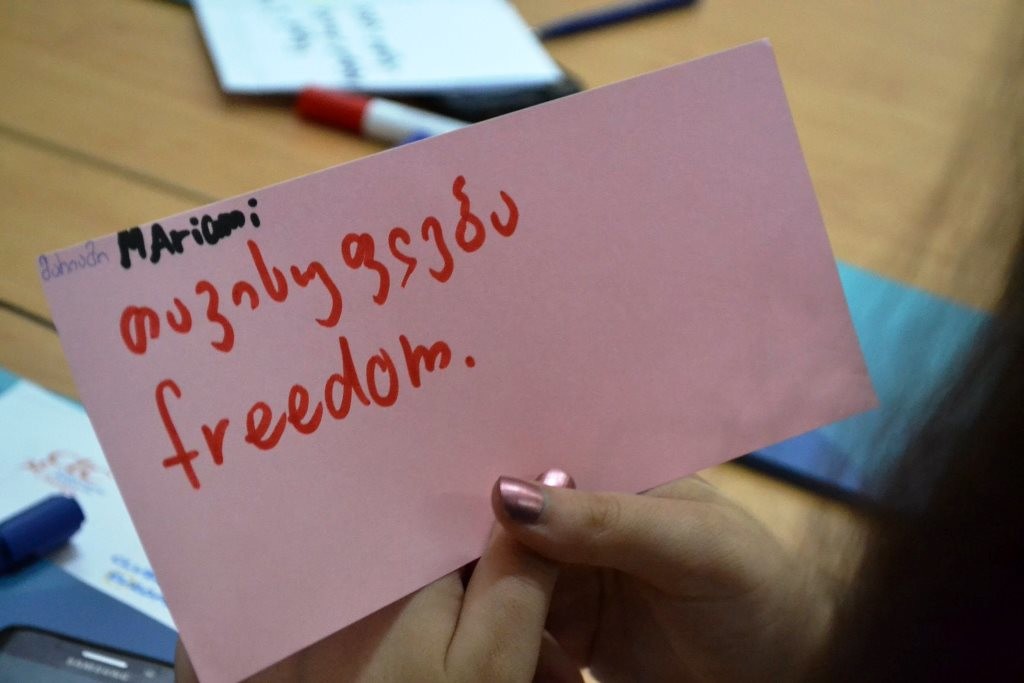 მარიამი MAriami
თავისუფლება
freedom.
SAMSUNG